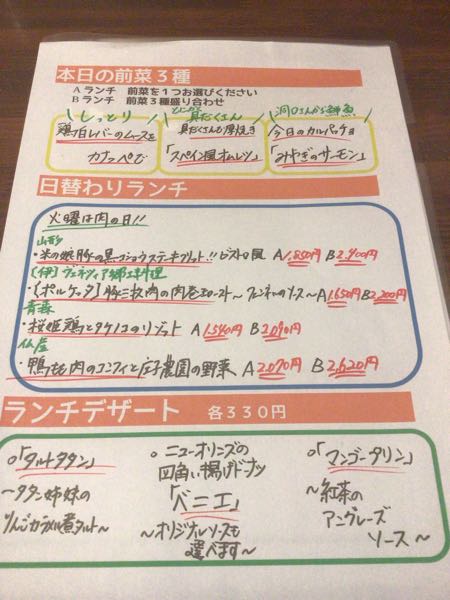 本日の前菜3種
Aランチ 前菜を1つお選びください
Bランチ 前菜3種盛り合わせ
しっとり
鶏白レバーのムースを
カナッペで
具だくさん
具だくさんな厚焼き
「スペイン風オムレツ」
洞口さんから鮮魚
今日のカルパッチョ
「みやぎのサーモン」
日替わりランチ
火曜は肉の日!!
山形
・米の娘豚の黒コショウステーキフリット!! ビストロ風 A1,850円 B2,400円
(伊)ヴェネツィア郷土料理
・【ポルケッタ】豚三枚肉の肉巻きロースト~フェンネルのソース~A1,650円 B2,200円
青森
・桜姫鶏とタケノコのリゾット A1,540円 B2,090円
仏産
・鴨もも肉のコンフィと庄子農園の野菜 A2,070円 B2,620円
ランチデザート 各330円
○「タルトタタン」
~タタン姉妹の
りんごカラメル煮タルト~
○ニューオリンズの
四角い揚げドーナツ
「ベニエ」
~オリジナルソースも
選べます~
○「マンゴープリン」
~紅茶の
アングレーズ
ソース~